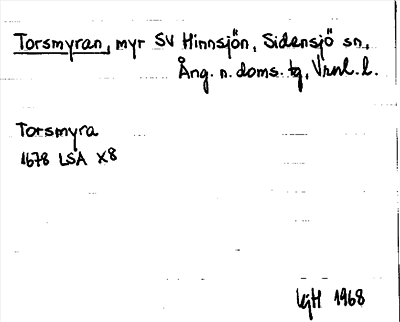 Torsmyran, myr SV Hinnsjön, Sidensjö sn,
Ång. n. doms. tg, Vrnl. l.
Torsmyra
1678 LSA X8
LgH 1968